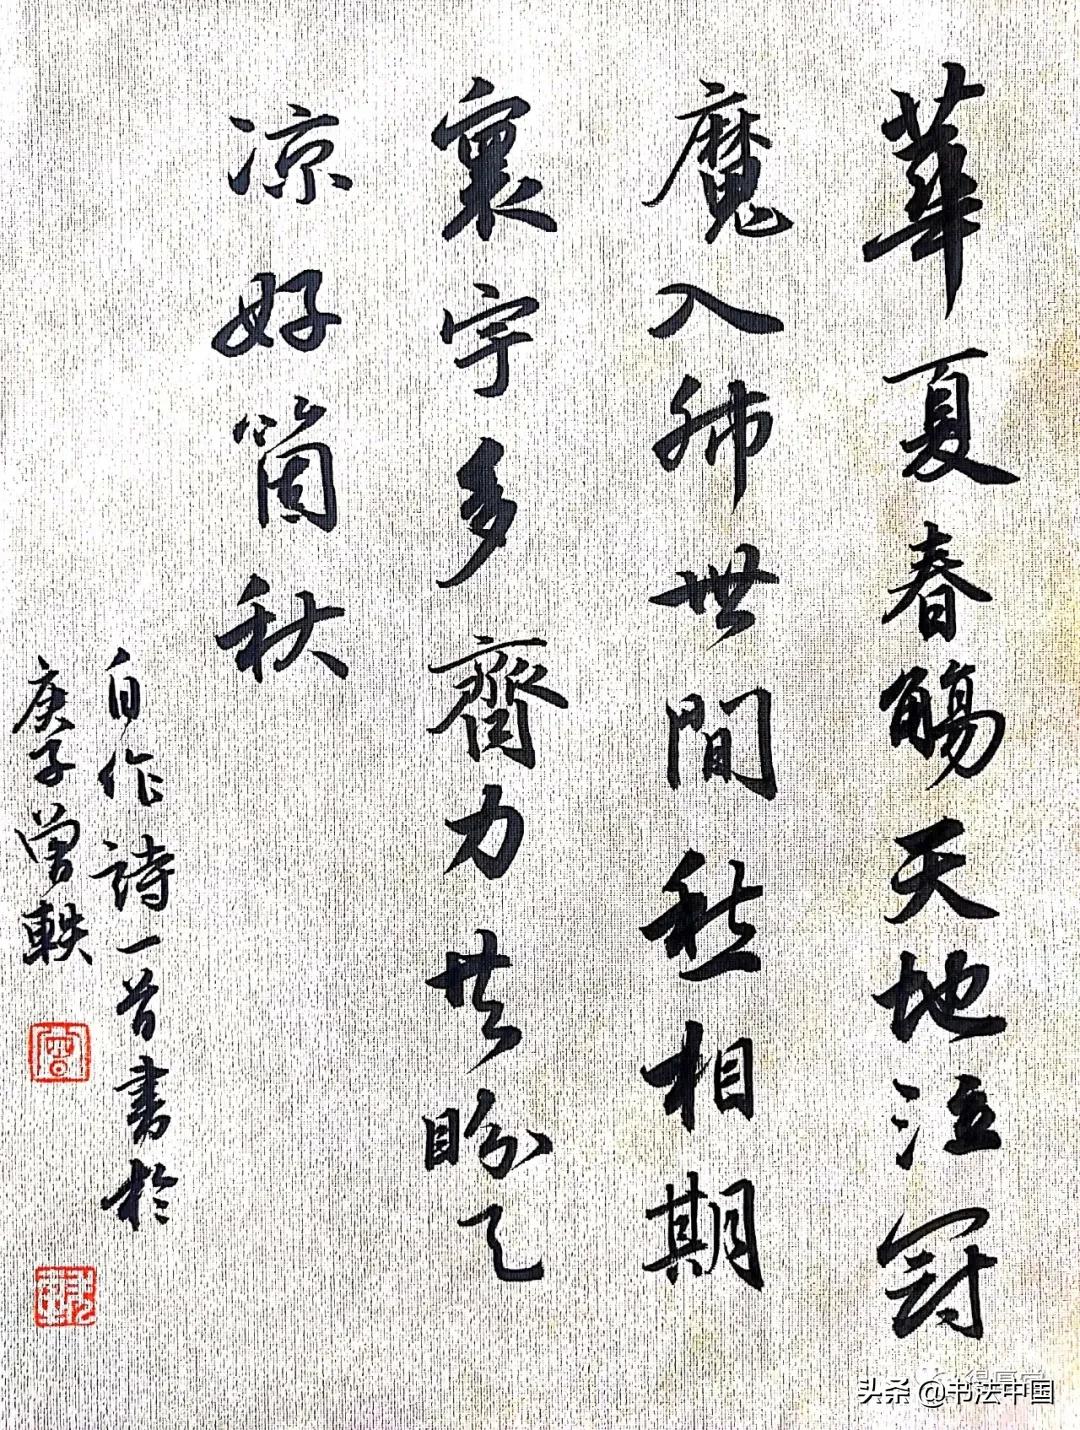 華夏春觴天地泣冠
魔入肺世間愁相期
寰宇多齊力共盼天
凉好箇秋
自作詩一首書於
庚子曾軼
头条 @书法中国